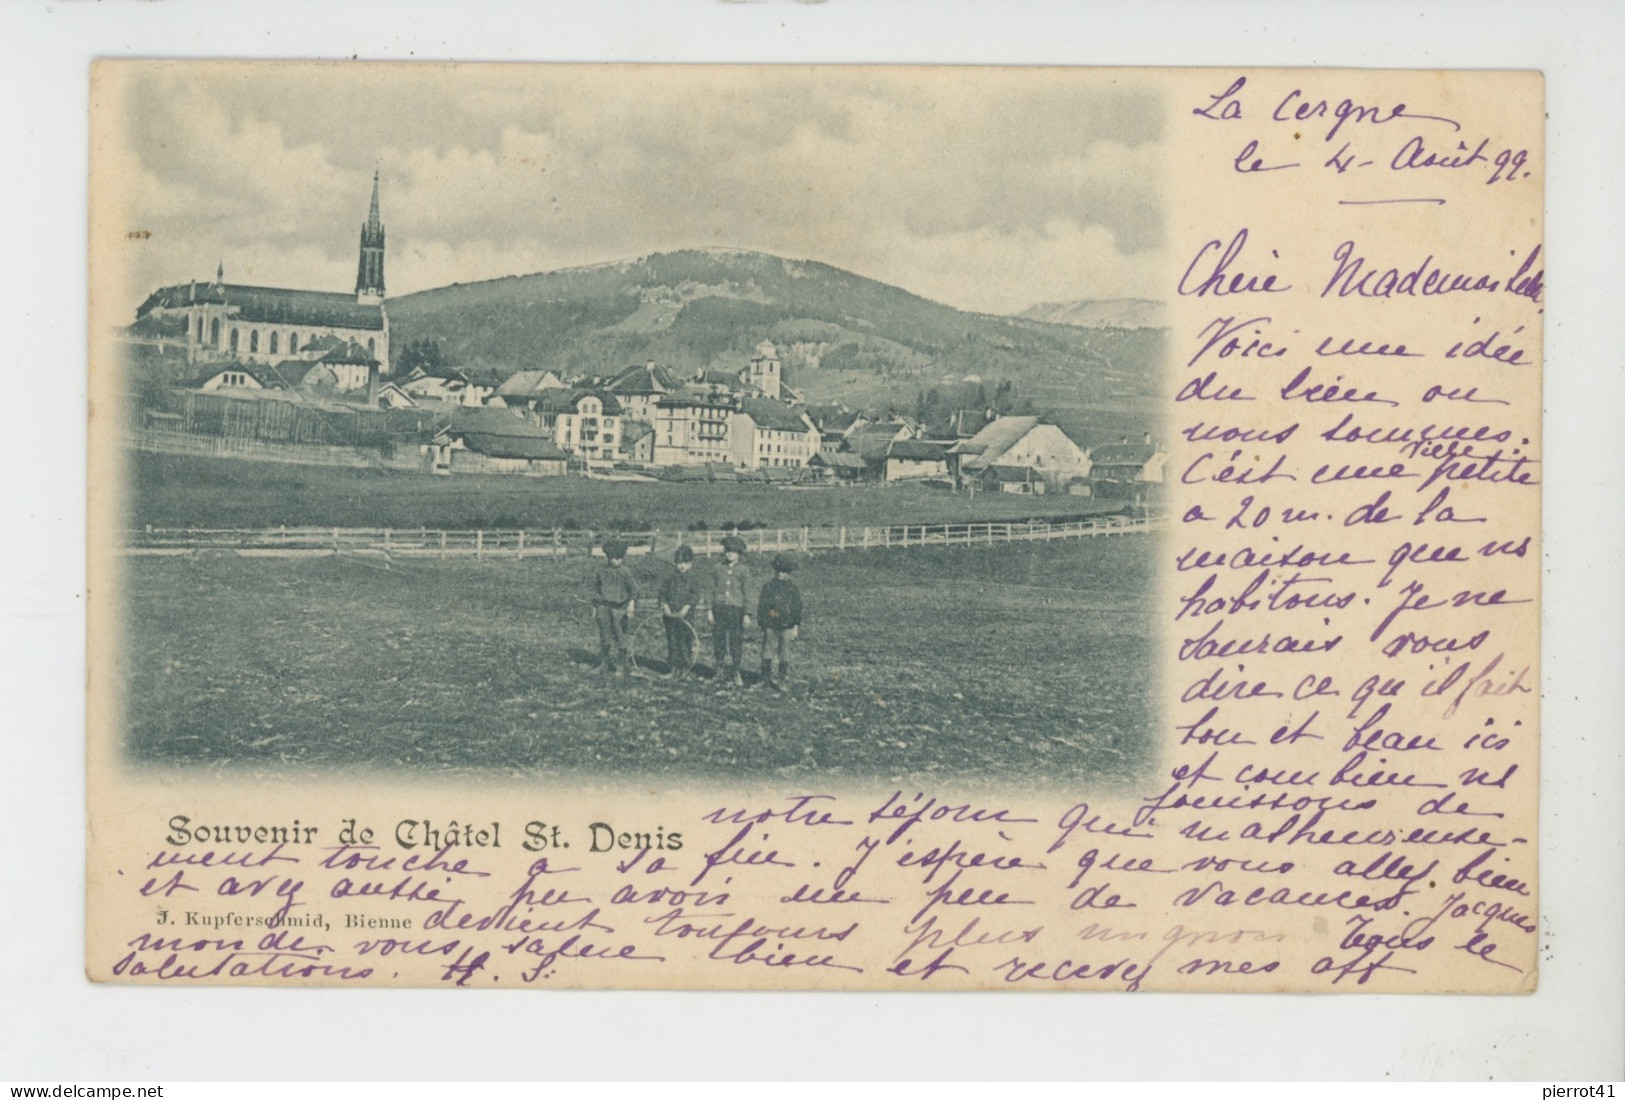 La Cergne
le 4 - Août 99.
Chère Mademoiselle,
Voici une idée
du lieu ou
nous sommes.
C'est une petite ville
a 20 m. de la
maison que ns
habitons. Je ne
saurais vous
dire ce qu'il fait
bon et beau ici
et combien ns
jouissons de
notre séjour qui malheureuse-
ment touche a sa fin. J'espère que vous allez bien
et avez aussi pu avoir un peu de vacances. Jacques
devient toujours plus mignon. Tous le
monde vous salue bien et recevez mes aff
salutations. H. S.
Souvenir de Châtel St. Denis
J. Kupferschmid, Bienne
pierrot41